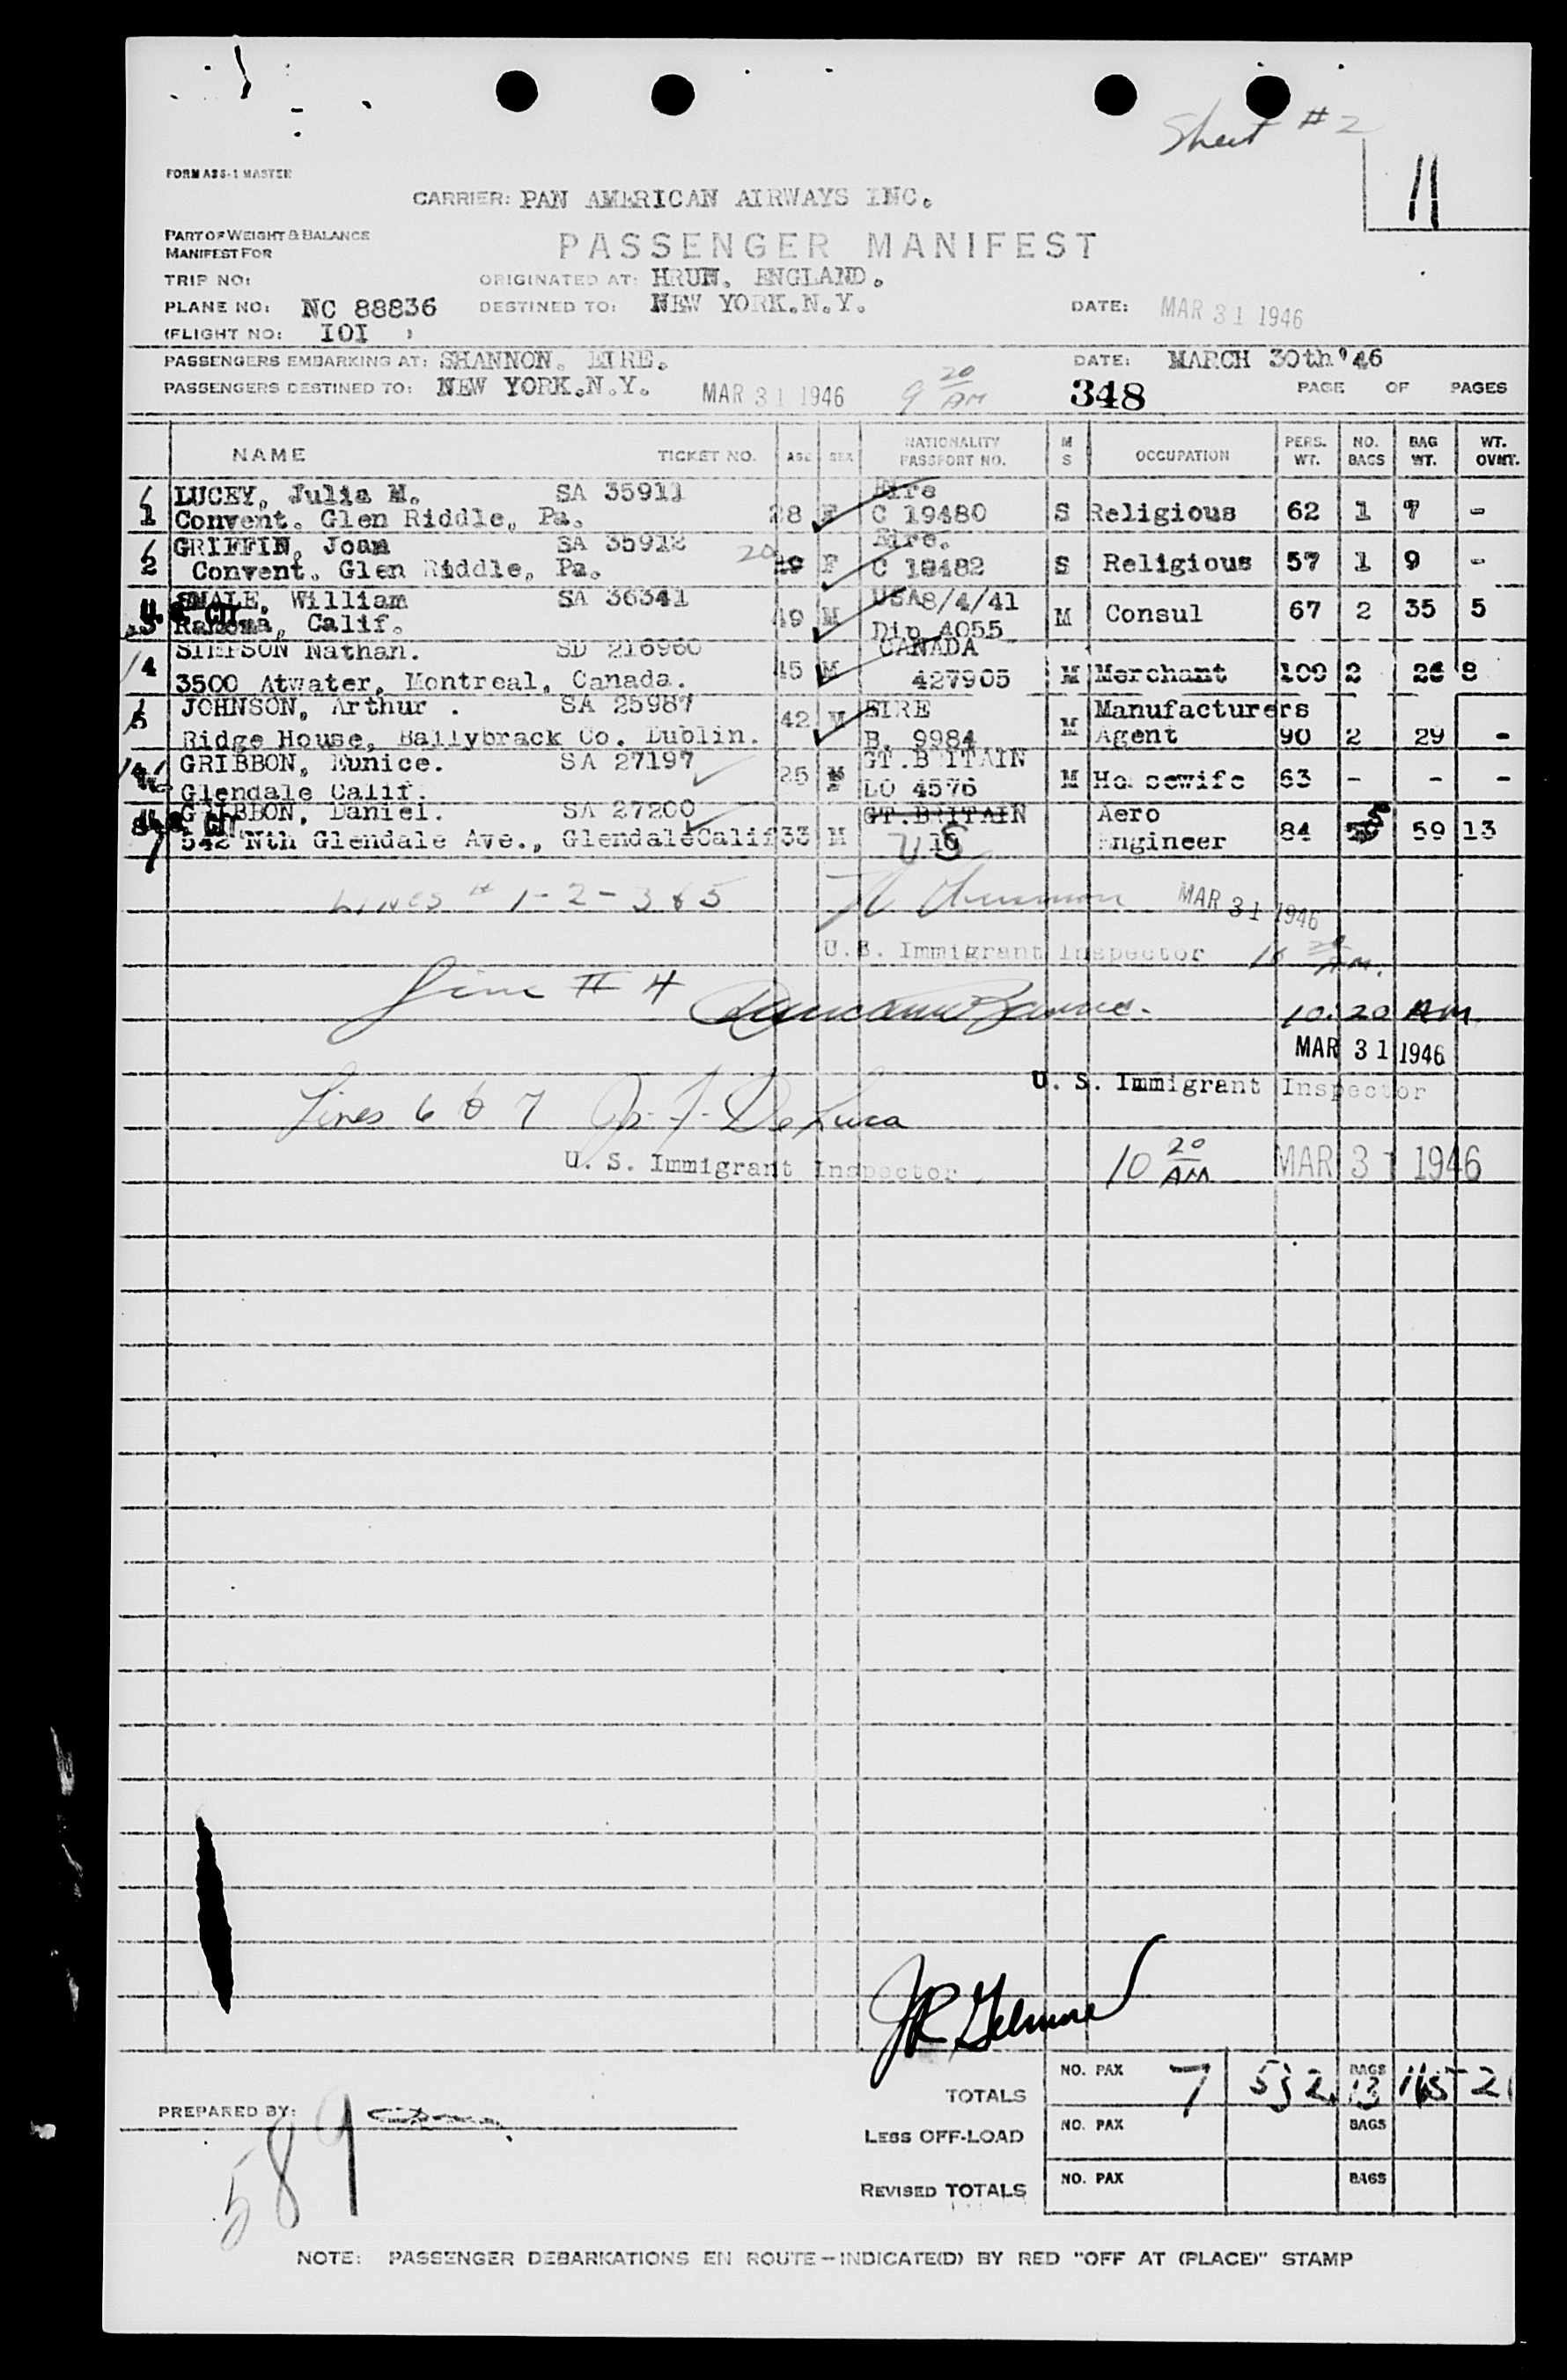 Sheet #2
11
FORM ASS-1 MASTER
CARRIER: PAN AMERICAN AIRWAYS INC.
PART OF WEIGHT & BALANCE
MANIFEST FOR
PASSENGER MANIFEST
TRIP NO: ORIGINATED AT: HRUN. ENGLAND.
PLANE NO: NC 88836 DESTINED TO: NEW YORK.N.Y. DATE: MAR 31 1946
(FLIGHT NO: IOI )
PASSENGERS EMBARKING AT: SHANNON. EIRE. DATE: MARCH 30th '46
PASSENGERS DESTINED TO: NEW YORK.N.Y. MAR 31 1946 9 20 AM 348 PAGE OF PAGES
NAME TICKET NO. AGE SEX NATIONALITY PASSPORT NO. M S OCCUPATION PERS. WT. NO. BAGS BAG WT. WT. OVWT.
LUCEY, Julia M. SA 35911 Eire
1 Convent. Glen Riddle, Pa. 28 F C 19480 S Religious 62 1 7 -
GRIFFIN, Joan SA 35912 Eire.
2 Convent. Glen Riddle, Pa. 20 F C 19482 S Religious 57 1 9 -
SMALE, William SA 36341 USA8/4/41
3 Ramona, Calif. 49 M Dip 4055 M Consul 67 2 35 5
SIMPSON Nathan. SD 216960 CANADA
4 3500 Atwater, Montreal, Canada. 45 M 427905 M Merchant 109 2 26 8
JOHNSON, Arthur . SA 25987 EIRE Manufacturers
5 Ridge House, Ballybrack Co. Dublin. 42 M B. 9984 M Agent 90 2 29 -
GRIBBON, Eunice. SA 27197 GT.BRITAIN
Glendale Calif. 25 LO 4576 M Housewife 63 - - -
GRIBBON, Daniel. SA 27200 GT.BRITAIN Aero
7 542 Nth Glendale Ave., GlendaleCalif 33 M US Engineer 84 5 59 13
LINES # 1-2-3&5 MAR 31 1946
U.S. Immigrant Inspector
Line # 4 10:20 AM
MAR 31 1946
U. S. Immigrant Inspector
Lines 6 & 7 J. F. DeLuca
U. S. Immigrant Inspector 10 20 AM MAR 31 1946
JR Gelmore
TOTALS NO. PAX 7 532 BAGS 13 165 21
PREPARED BY:
LESS OFF-LOAD NO. PAX BAGS
589
REVISED TOTALS NO. PAX BAGS
NOTE: PASSENGER DEBARKATIONS EN ROUTE - INDICATE(D) BY RED "OFF AT (PLACE)" STAMP